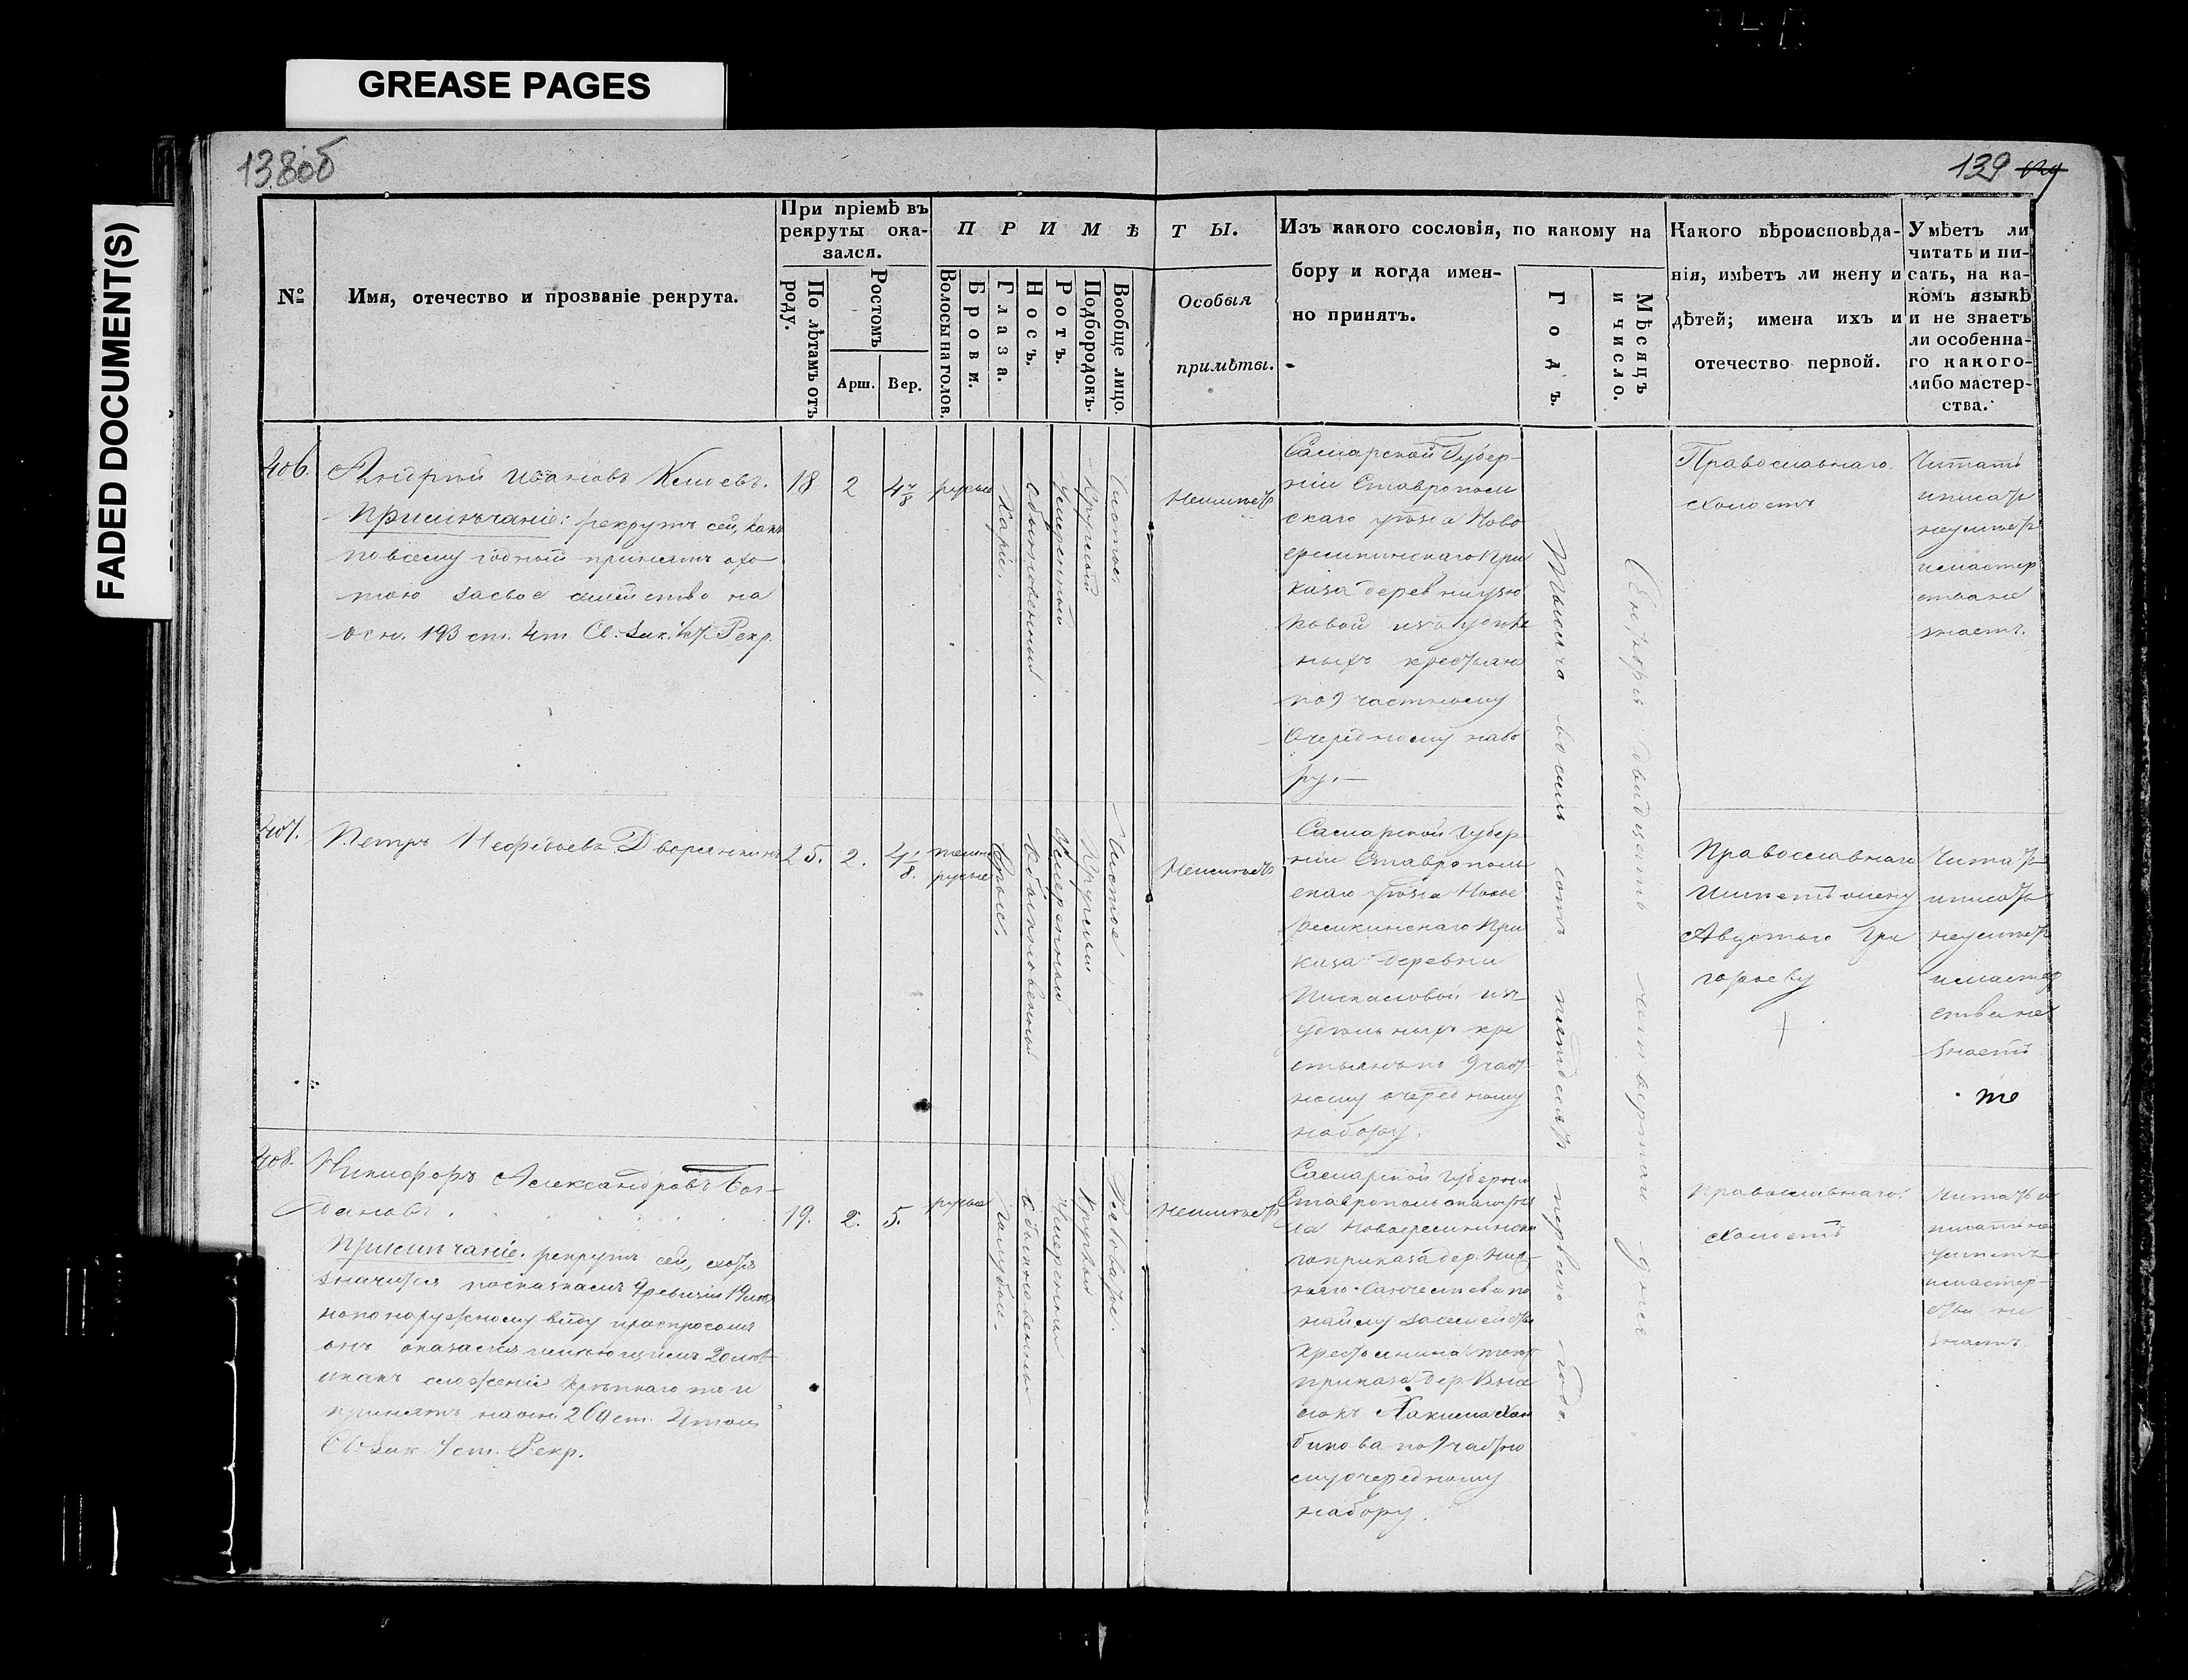 GREASE PAGES
FADED DOCUMENT(S)
138об
139
№
Имя, отечество и прозваніе рекрута.
При пріемѣ въ
рекруты ока-
зался.
По лѣтамъ отъ
роду.
Ростомъ
Арш.
Вер.
ПРИМѢТЫ.
Волосы на голов.
Брови.
Глаза.
Носъ.
Ротъ.
Подбородокъ.
Вообще лицо.
Особыя
примѣты.
Изъ какого сословія, по какому на
бору и когда имен-
но принятъ.
Годъ.
Мѣсяцъ
и число.
Какого вѣроисповѣда-
нія, имѣетъ ли жену и
дѣтей; имена ихъ и
отечество первой.
Умѣетъ ли
читать и пи-
сать, на ка-
комъ языкѣ
и не знаетъ
ли особенна-
го какого-
либо мастер-
ства.
406.
Андрей Ивановъ
Примѣчаніе: рекрутъ сей, какъ
по всему годный принятъ охо
тою за свое семейство на
осн. 193 ст. 4 т. Св. Зак. Рекр.
18
2
4 7/8
русые
Каріе.
Обыкновенный.
Умѣренный
Круглый
Чистое.
Неимѣетъ
Самарской Губер-
ніи Ставрополь
скаго уѣзда Ново
еремкинскаго При
каза деревни Узю
ковой изъ удѣль
ныхъ крестьянъ
по 9 частному
очередному набо
ру.—
Тысяча восемь сотъ пятдесятъ перваго года.
Генваря двадцать четвертаго дня
Православнаго.
холостъ
Читать
и писать
неумѣетъ
и мастер
ства не
знаетъ.
407.
Петръ Нефедьевъ Дворянкинъ
25.
2.
4 1/8.
темно
русые
Сѣрые.
Обыкновенный
Умѣренный
Круглый
Чистое
Неимѣетъ
Самарской Губер-
ніи Ставрополь
скаго уѣзда Новое
ремкинскаго При
каза деревни
Пискаловой изъ
удѣльныхъ кре
стьянъ по 9 част
ному очередному
набору.
Православнаго
Имѣетъ жену
Авдотью Гри
горьеву
Читать
и писать
неумѣетъ
и мастер
ства не
знаетъ
те
408.
Никифоръ Александровъ Бог-
дановъ.
Примѣчаніе. рекрутъ сей, хотя
значится по сказкамъ 9 ревизіи 19 лѣтъ
но по наружному виду и распросамъ
онъ оказался имѣющимъ 20 лѣтъ
и какъ сложенія крѣпкаго то и
принятъ на осн. 260 ст. 4 том.
Св. Зак. Уст. Рекр.
19.
2.
5.
русые
Голубые.
Обыкновенный
Умѣренный
Круглый
Рябоватое.
Неимѣетъ
Самарской Губерніи
Ставропольскаго уѣз
да Новоеремкинска
го приказа дер. Ниж
няго Санчелеева по
найму за семейство
крестьянина того
приказа дер. Высе
локъ
по 9 частно
му очередному
набору.
Православнаго.
холостъ
Читать и
писать не
умѣетъ
и мастер-
ства не
знаетъ